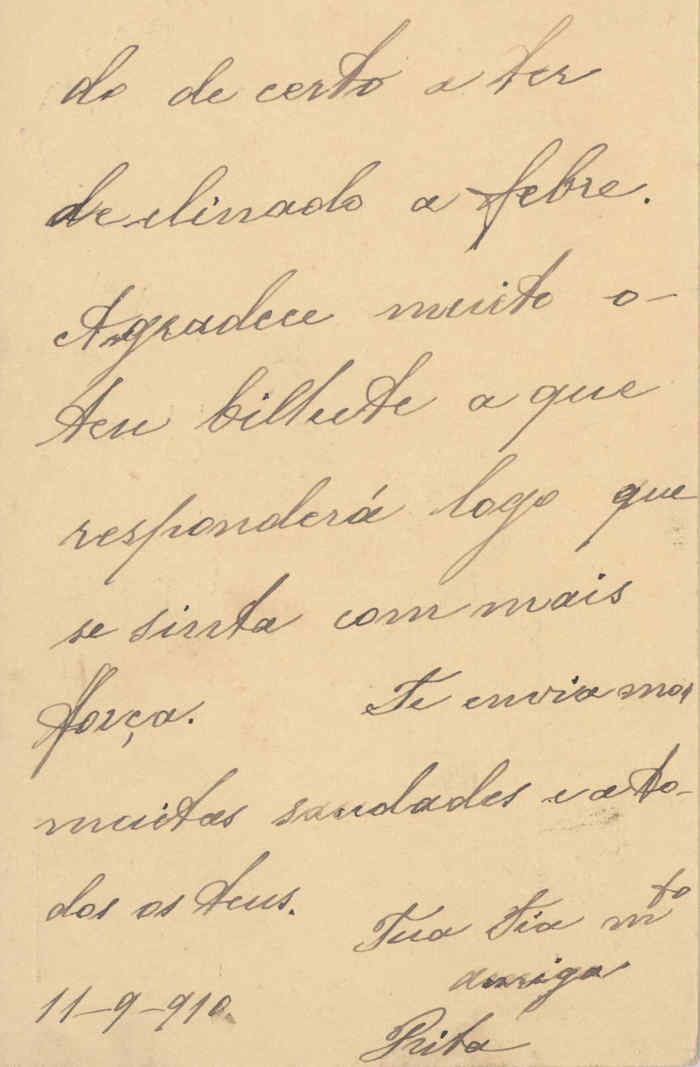 do de certo a ter
declinado a febre.
Agradece muito o
teu bilhete a que
responderá logo que
se sinta com mais
força. Te enviamos
muitas saudades e a to-
dos os teus.
Tua Tia mto
amiga
11-9-910.
Rita